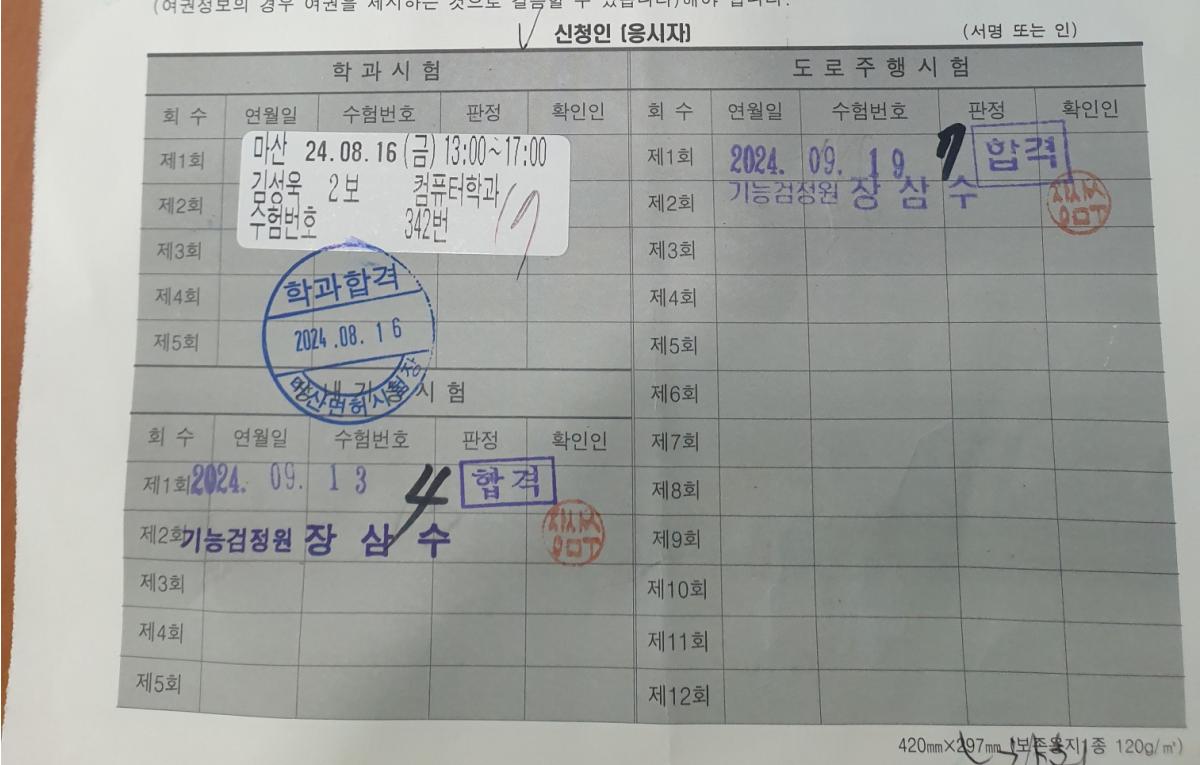 (여권정보의 경우 여권을 제시하는 것으로 갈음할 수 있습니다)해야 합니다.
신청인 (응시자)
(서명 또는 인)
학과시험
회 수 연월일 수험번호 판정 확인인
제1회
제2회
제3회
제4회
제5회
마산 24.08.16(금) 13:00~17:00
김성욱 2보 컴퓨터학과
수험번호 342번
학과합격
2024.08.16
마산면허시험장
시험
회 수 연월일 수험번호 판정 확인인
제1회 2024. 09. 13 4 합격
제2회 기능검정원 장삼수
제3회
제4회
제5회
도로주행시험
회 수 연월일 수험번호 판정 확인인
제1회 2024. 09. 19 7 합격
제2회 기능검정원 장삼수
제3회
제4회
제5회
제6회
제7회
제8회
제9회
제10회
제11회
제12회
420㎜×297㎜ (보존용지1종 120g/㎡)